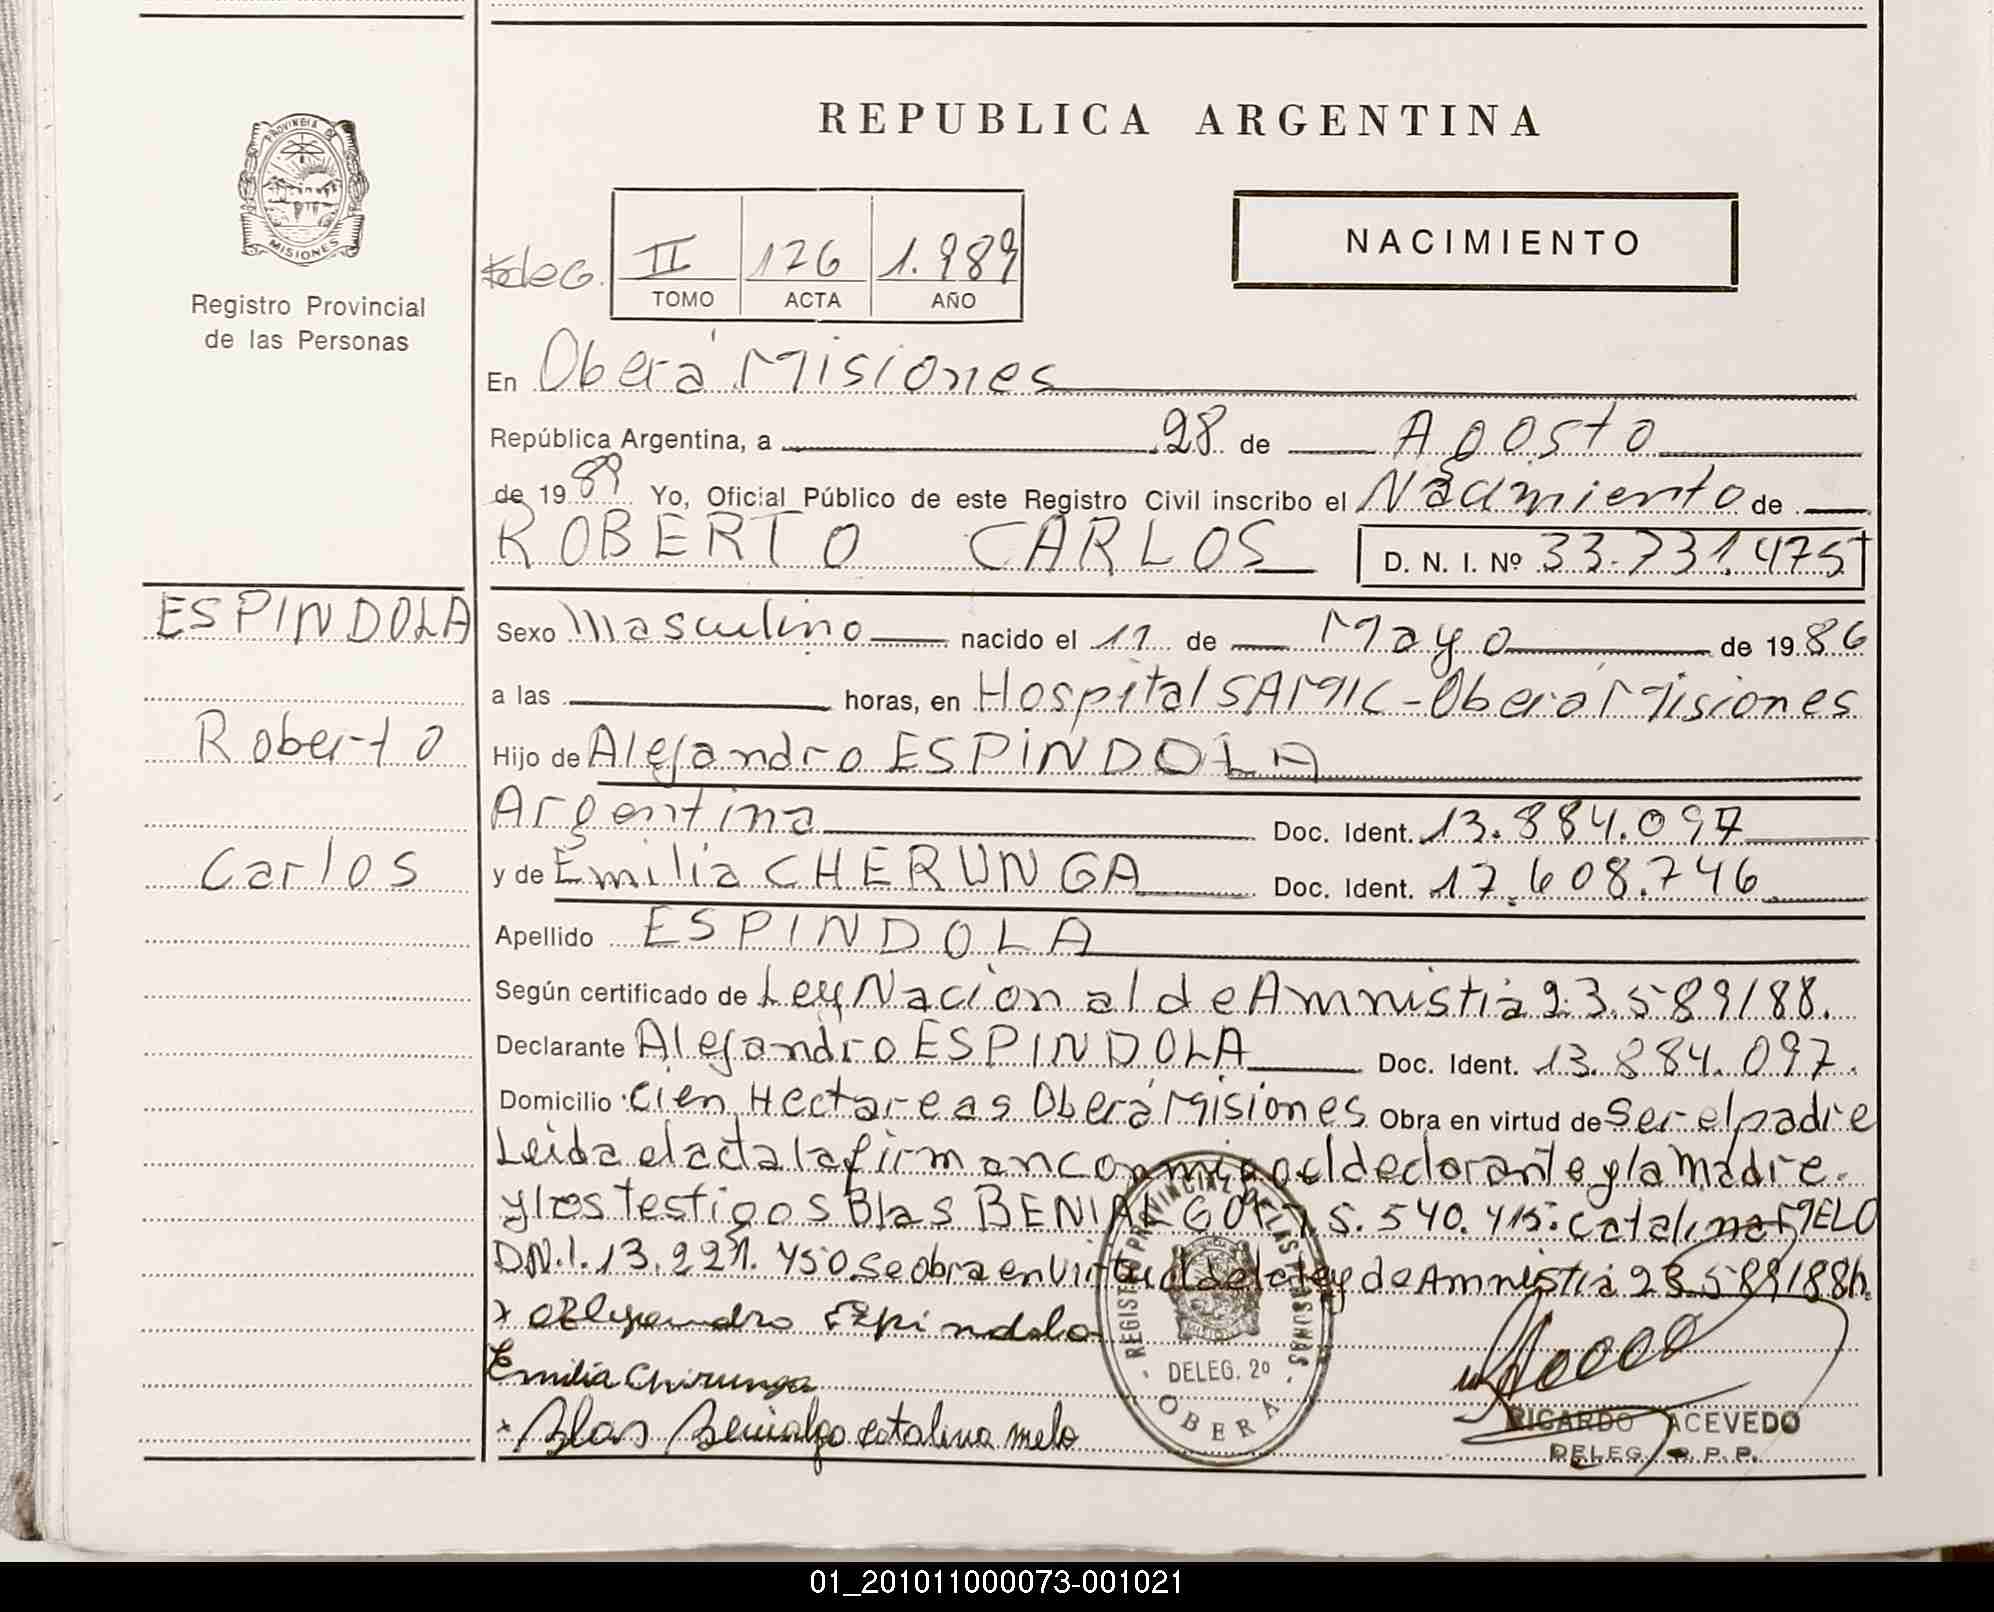 REPUBLICA ARGENTINA
PROVINCIA DE
MISIONES
Registro Provincial
de las Personas
II 126 1.989
TOMO ACTA AÑO
NACIMIENTO
En Oberá Misiones
República Argentina, a 28 de Agosto
de 1989 Yo, Oficial Público de este Registro Civil inscribo el Nacimiento de
ROBERTO CARLOS D. N. I. Nº 33.731.475
ESPINDOLA
Roberto
Carlos
Sexo Masculino nacido el 11 de Mayo de 1986
a las horas, en Hospital SAMIC-Oberá Misiones
Hijo de Alejandro ESPINDOLA
Argentina Doc. Ident. 13.884.097
y de Emilia CHERUNGA Doc. Ident. 17.608.746
Apellido ESPINDOLA
Según certificado de Ley Nacional de Amnistia 23.589/88.
Declarante Alejandro ESPINDOLA Doc. Ident. 13.884.097.
Domicilio Cien Hectareas Oberá Misiones Obra en virtud de Ser el padre
Leida el acta la firman conmigo el declarante y la Madre.
y los testigos Blas BENIALGO 5.540.415. Catalina MELO
D.N.I. 13.221.450. Se obra en Virtud de la ley de Amnistia 23.589/88
Alejandro Espindola
Emilia Chirunga
Blas Benialgo Catalina melo
REGISTRO PROVINCIAL DE LAS PERSONAS
DELEG. 2º
OBERA
RICARDO ACEVEDO
DELEG. R. P. P.
01_201011000073-001021